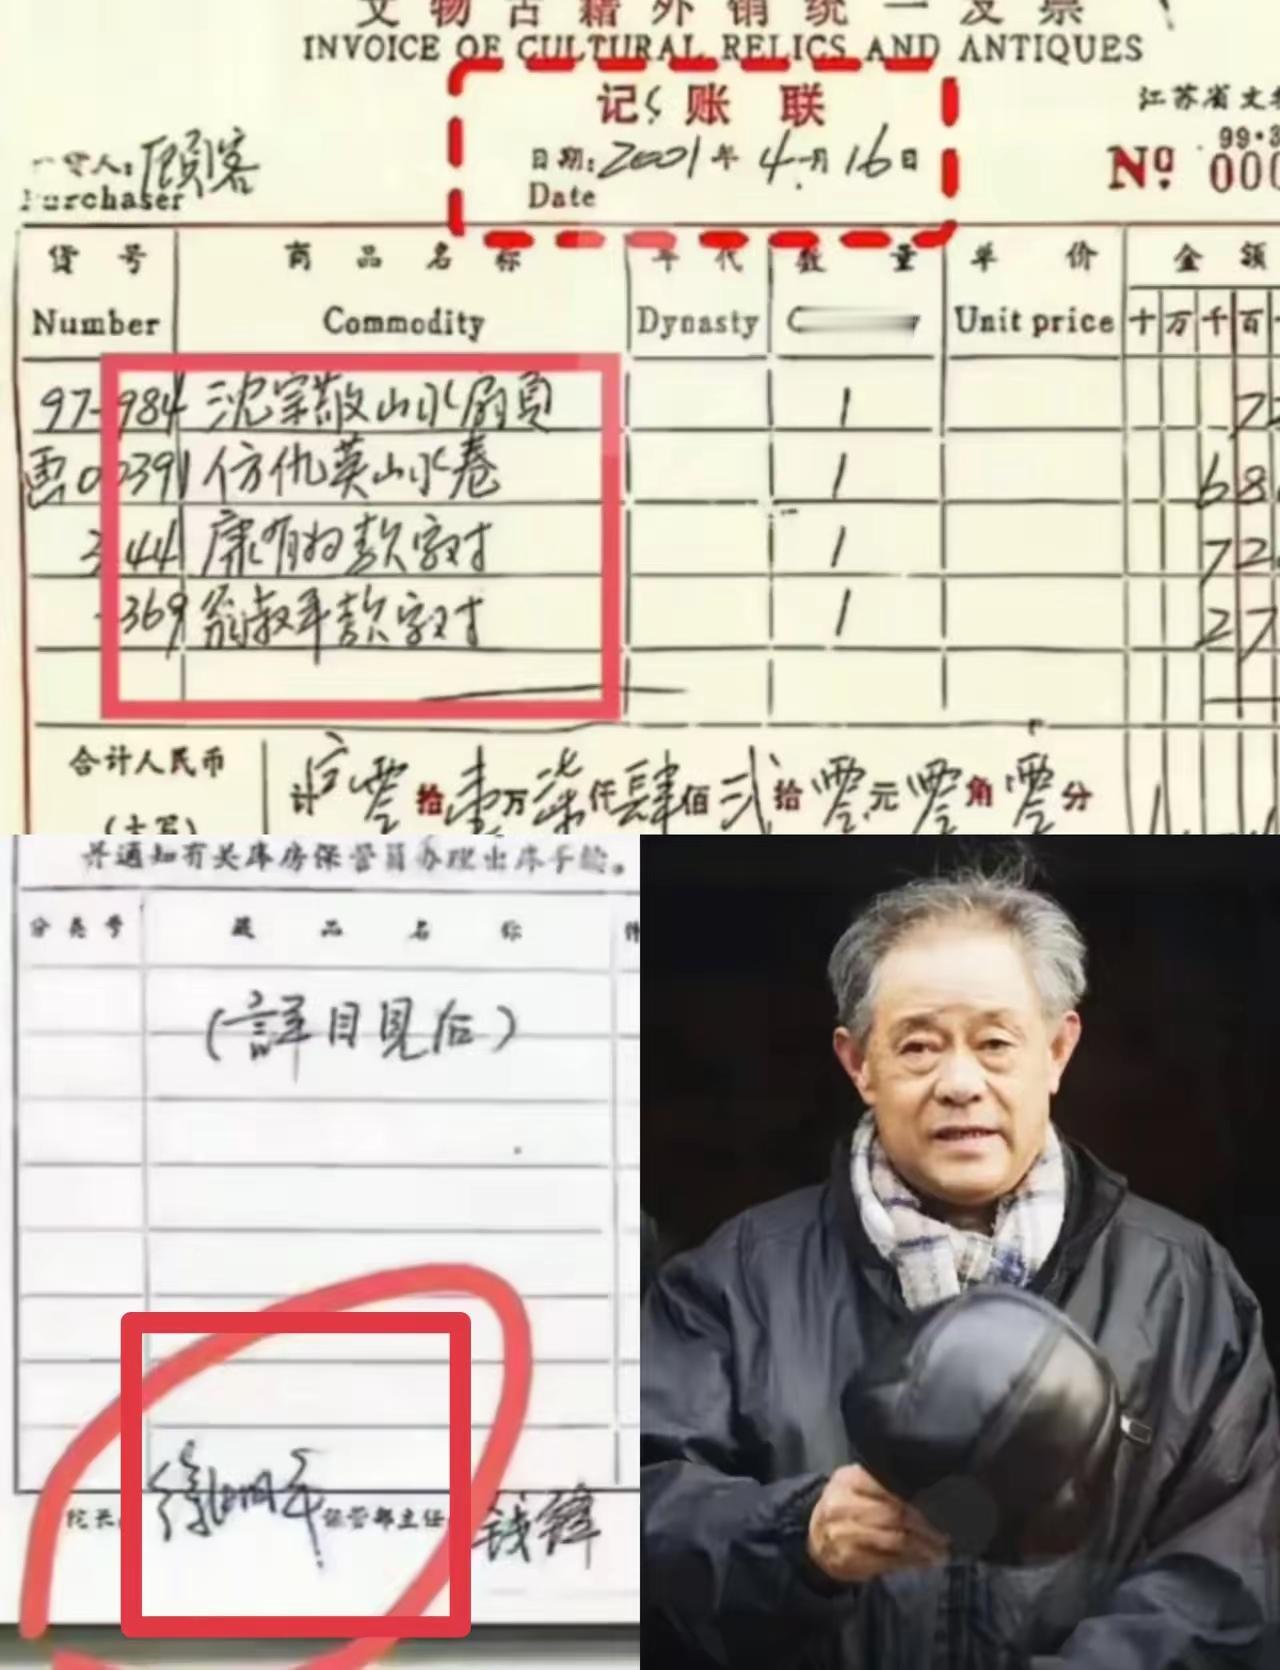 文物古籍外销统一发票
INVOICE OF CULTURAL RELICS AND ANTIQUES
记账联
江苏省文
日期:2001年4月16日
Date
99·3
Nº 000
货人:顾客
Purchaser
货号 商品名称 年代 数量 单价 金额
Number Commodity Dynasty Unit price 十万千百
97-984 沈宗敬山水扇页 1 7
画0391 仿仇英山水卷 1 68
3 44 康有为款字对 1 72
369 翁叔平款字对 1 27
合计人民币
(大写)
计 零拾壹万柒仟肆佰贰拾零元零角零分
并通知有关库房保管员办理出库手续。
分类号 藏品名称 件
(詳目見后)
院长: 徐湖平 保管部主任 钱锋